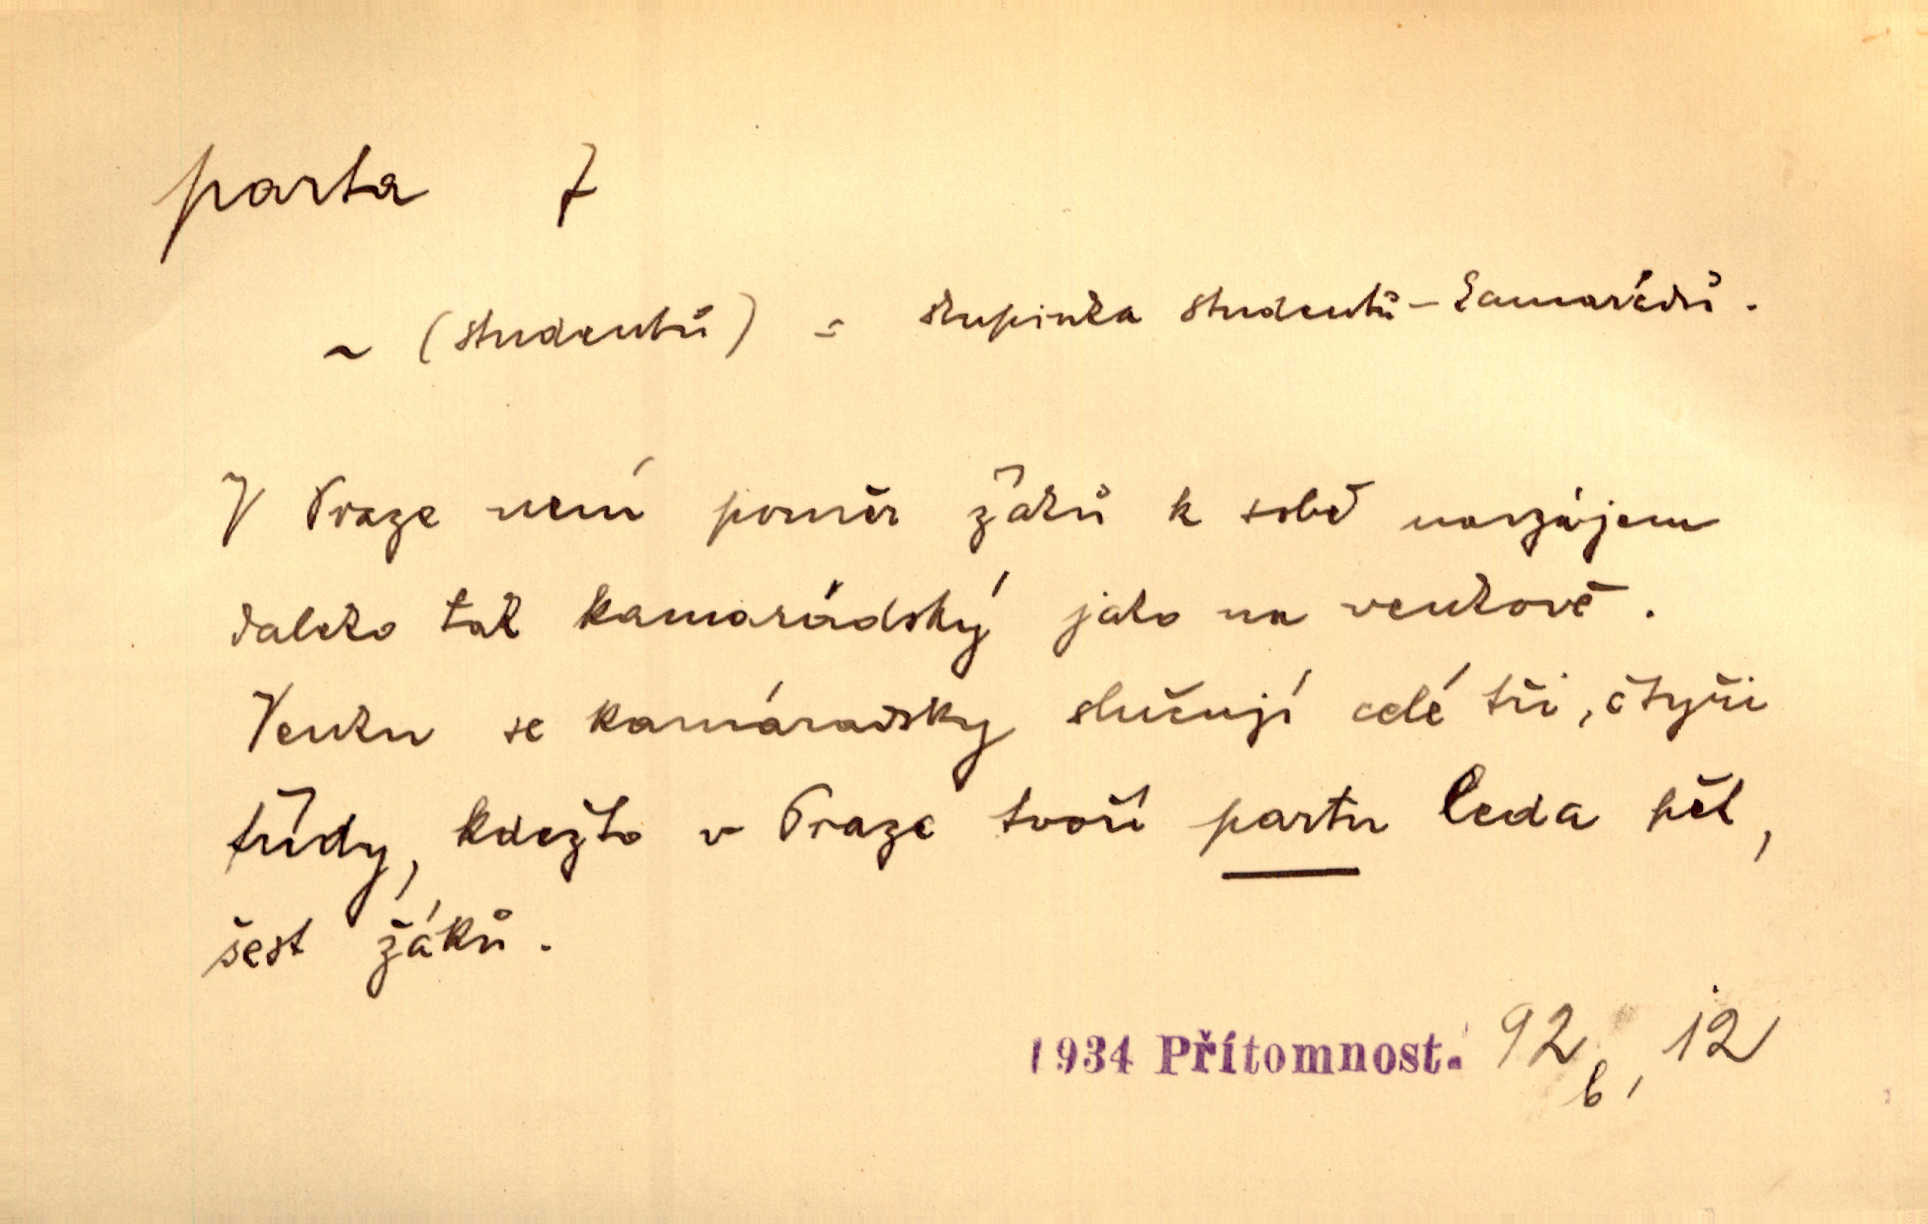 parta f
~ (studentů) = skupinka studentů-kamarádů.
V Praze není poměr žáků k sobě navzájem
daleko tak kamarádský jako na venkově.
Venku se kamáradsky slučují celé tři, čtyři
třídy, kdežto v Praze tvoří partu leda pět,
šest žáků.
1934 Přítomnost. 92 b, 12